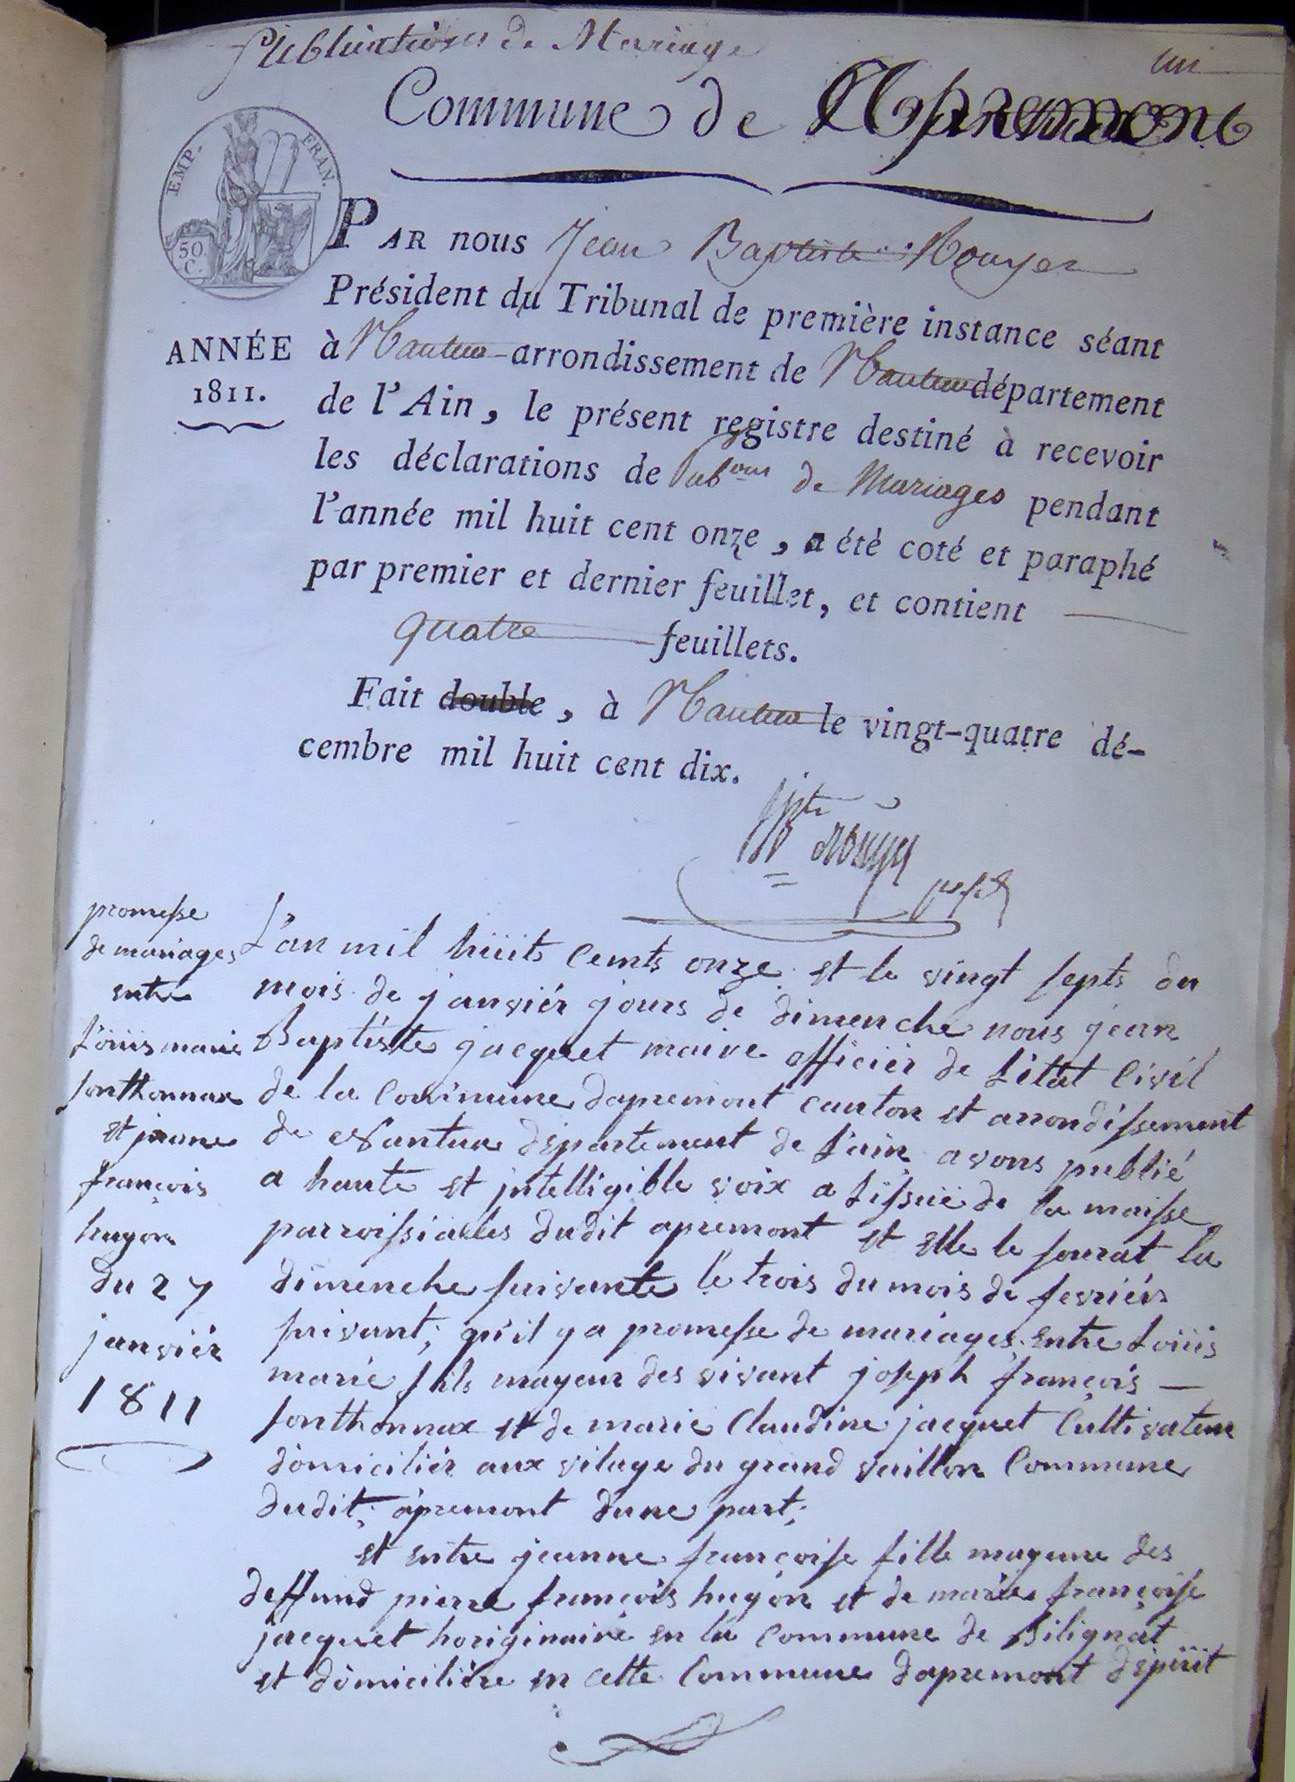 Publications de Mariage
un
Commune de Apremont
EMP. FRAN.
50 C.
PAR nous Jean Baptiste Rouyer
Président du Tribunal de première instance séant
ANNÉE
1811.
à Nantua arrondissement de Nantua département
de l'Ain, le présent registre destiné à recevoir
les déclarations de pub.ons de Mariages pendant
l'année mil huit cent onze, a été coté et paraphé
par premier et dernier feuillet, et contient
quatre feuillets.
Fait double, à Nantua le vingt-quatre dé-
cembre mil huit cent dix.
promesse
de mariages
entre
Loüis marie
fonthonnax
et jeanne
françois
hugon
du 27
janviér
1811
L'an mil hüit cents onze et le vingt septs du
mois de janviér jours de dimenche nous jean
Baptiste jacquet maire officiér de Litat Civil
de la Commune dapremont canton et arrondissement
de Nantua département de Lain avons publié
a haute et jntelligible voix a Lissuë de la maisse
parroissialles dudit apremont et elle le sourat la
dimenche suivante le trois du mois de fevriér
suivant; qu'il y a promesse de mariages entre Loüis
marie fils mayeur des vivant joseph françois
fonthonnax et de marie Claudine jacquet Cultivateur
domiciliér aux vilage du grand vaillon Commune
dudit apremont dune part;
et entre jeanne françoise fille mayeure des
deffund pierre françois hugon et de marie françoise
jacquet horiginaire en la commune de Bilignat
et domicilière en cette Commune dapremont